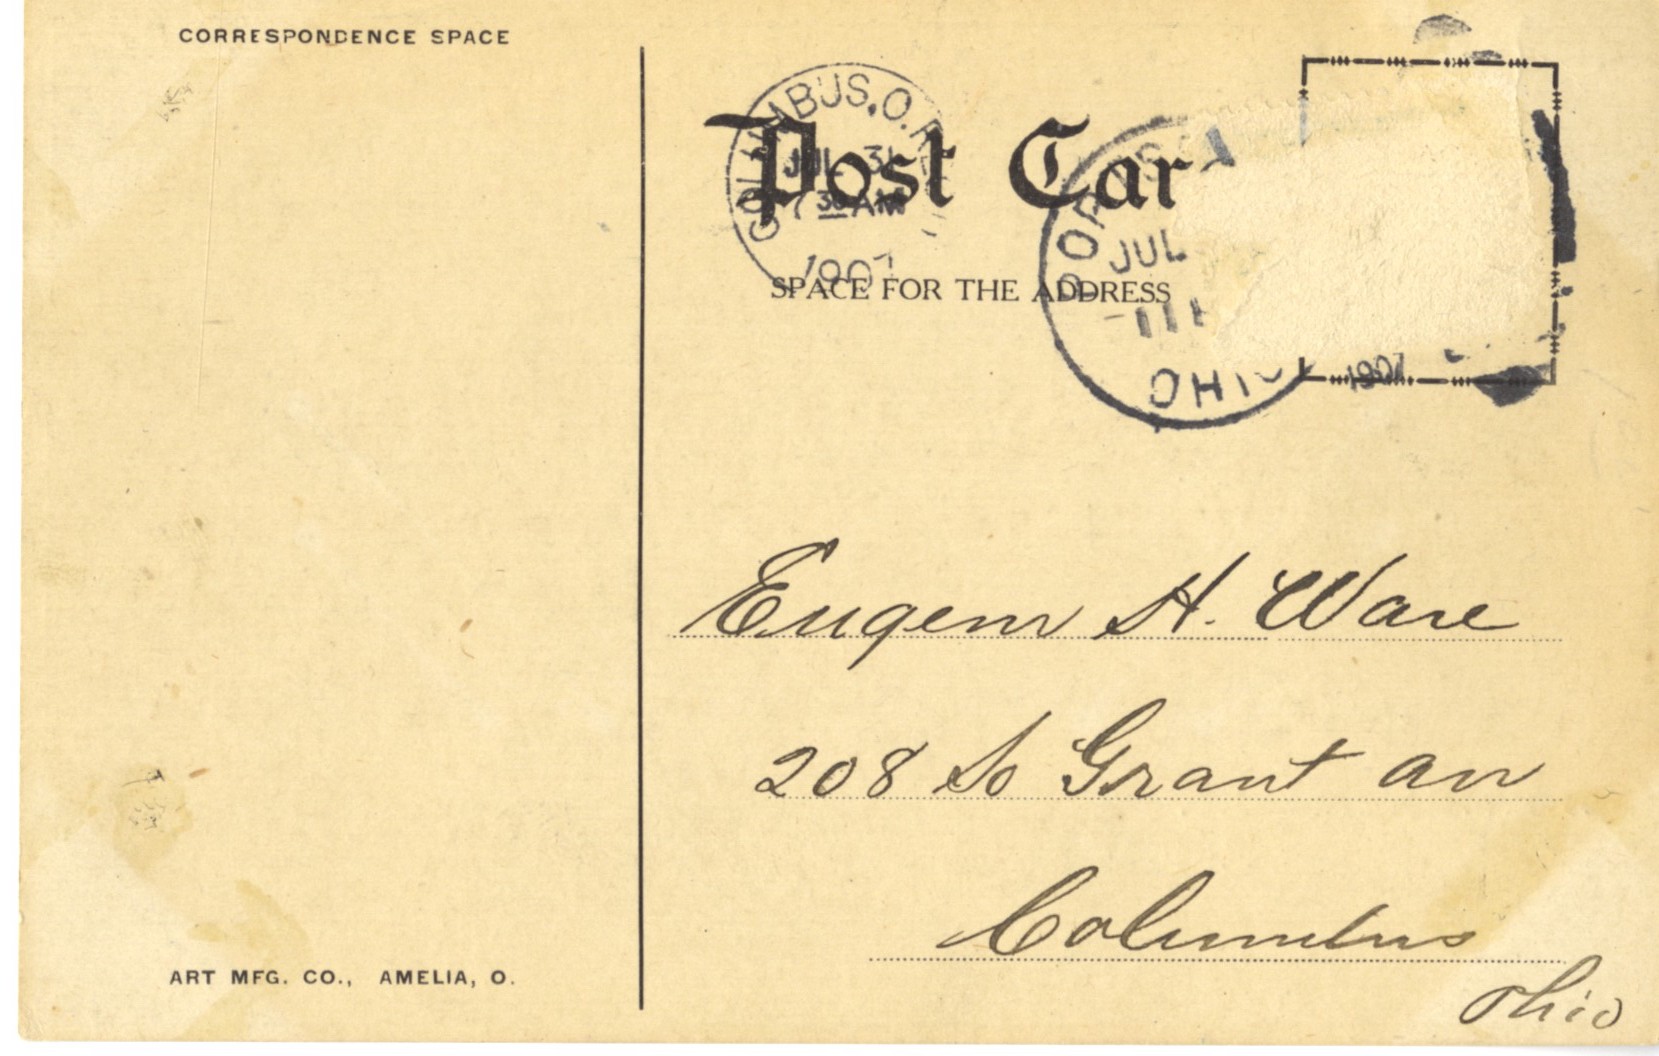 CORRESPONDENCE SPACE
COLUMBUS, O. REC'D
JUL 31
7 30 AM
1907
Post Car
JUL
OHIO
1907
SPACE FOR THE ADDRESS
Eugene H. Ware
208 So Grant av
Columbus
Ohio
ART MFG. CO., AMELIA, O.